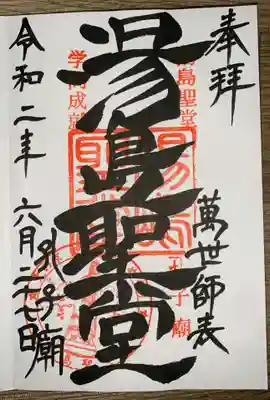 奉拝
萬世師表
湯島聖堂
湯島聖堂
孔子廟
学問成就
孔子廟
令和二年 六月二七日